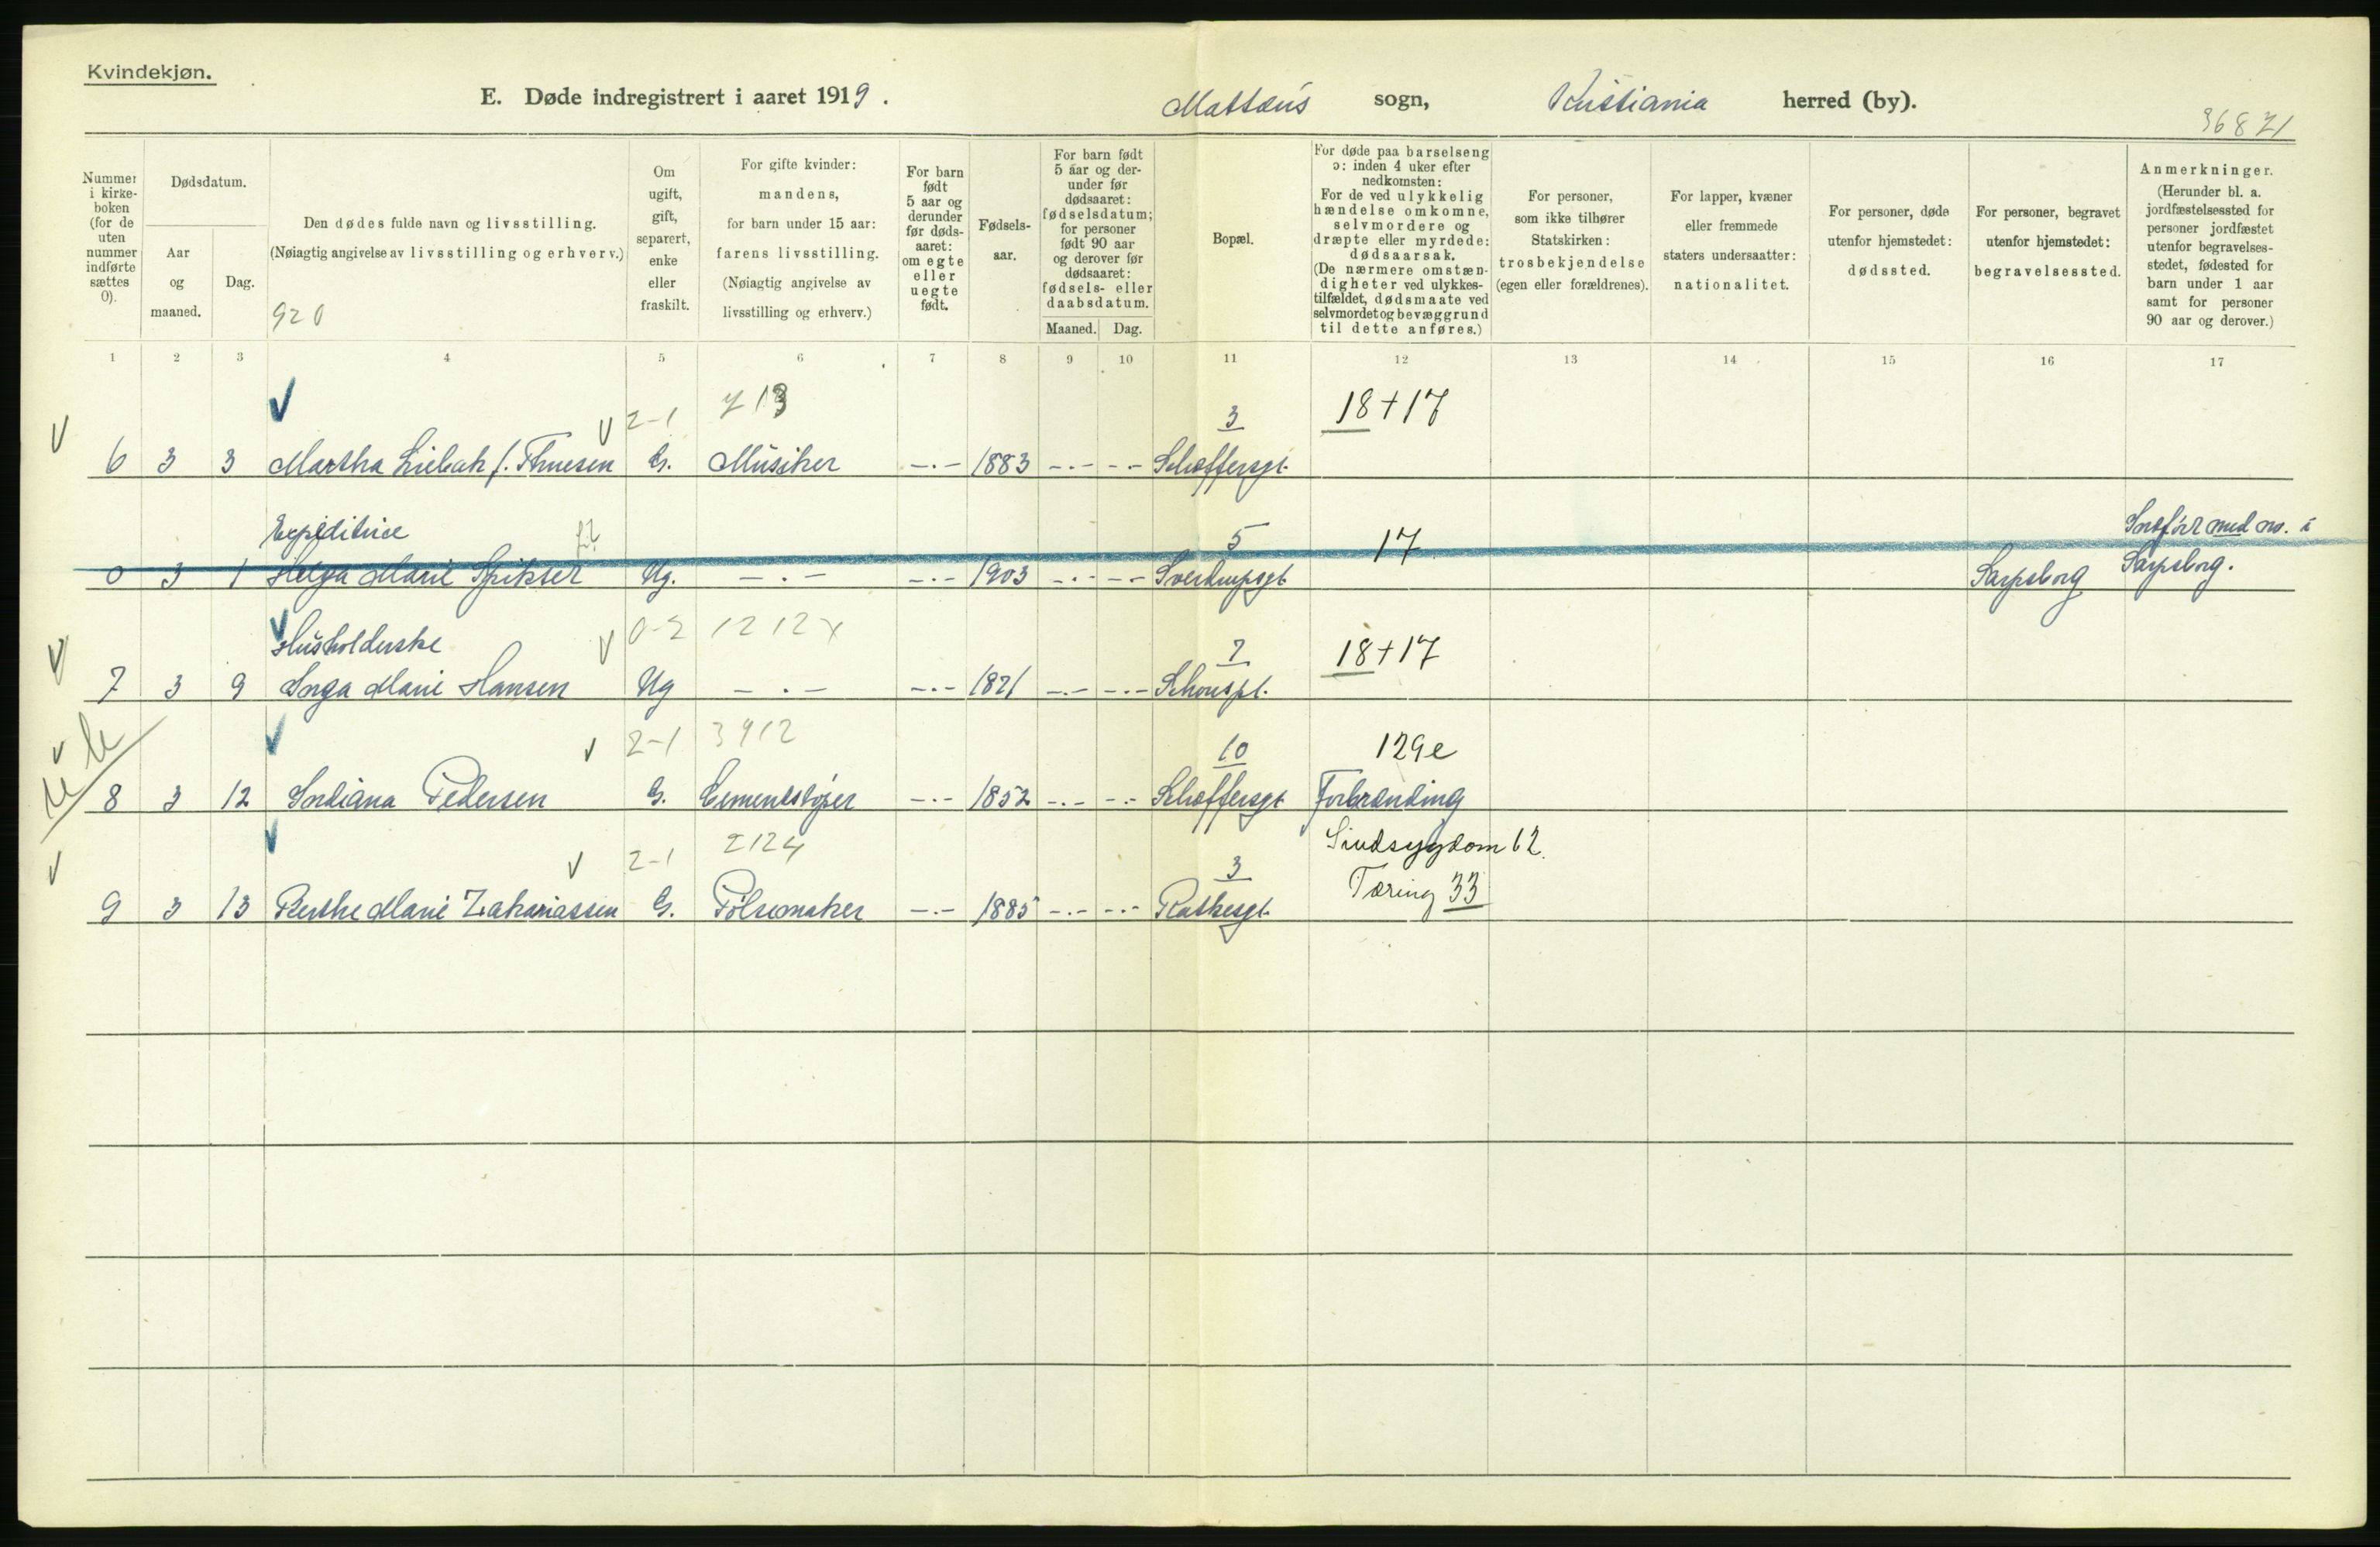 Kvindekjøn.
E. Døde indregistrert i aaret 1919.
Mattæus sogn, Kristiania herred (by).
36871
Nummer i kirke-boken (for de uten nummer indførte sættes 0).
Dødsdatum.
Aar og maaned.
Dag.
Den dødes fulde navn og livsstilling.
(Nøiagtig angivelse av livsstilling og erhverv.)
920
Om ugift, gift, separert, enke eller fraskilt.
For gifte kvinder: mandens, for barn under 15 aar: farens livsstilling. (Nøiagtig angivelse av livsstilling og erhverv.)
For barn født 5 aar og derunder før døds-aaret: om egte eller uegte født.
Fødsels-aar.
For barn født 5 aar og der-under før dødsaaret: fødselsdatum; for personer født 90 aar og derover før dødsaaret: fødsels- eller daabsdatum.
Maaned. Dag.
Bopæl.
For døde paa barselseng ɔ: inden 4 uker efter nedkomsten: For de ved ulykkelig hændelse omkomne, selvmordere og dræpte eller myrdede: dødsaarsak. (De nærmere omstæn-digheter ved ulykkes-tilfældet, dødsmaate ved selvmordet og bevæggrund til dette anføres.)
For personer, som ikke tilhører Statskirken: trosbekjendelse (egen eller forældrenes).
For lapper, kvæner eller fremmede staters undersaatter: nationalitet.
For personer, døde utenfor hjemstedet: dødssted.
For personer, begravet utenfor hjemstedet: begravelsessted.
Anmerkninger. (Herunder bl. a. jordfæstelsessted for personer jordfæstet utenfor begravelses-stedet, fødested for barn under 1 aar samt for personer 90 aar og derover.)
1 2 3 4 5 6 7 8 9 10 11 12 13 14 15 16 17
V 2-1 713 3 18+17
6 3 3 Martha Liebah f. Thuesen G. Musiker -.- 1883 -.- -.- Schæffersgt.
Expeditrice 5 17 Indført med no. i
0 3 1 Helga Marie Spikser Ug. -.- -.- 1903 -.- -.- Sverdrupsgt. Sarpsborg Sarpsborg.
Husholderske V 0-2 1212x 7 18+17
7 3 9 Inga Marie Hansen Ug -.- -.- 1871 -.- -.- Schouspl.
V 2-1 3912 10 129e
8 3 12 Indiana Pedersen G. Cementstøper -.- 1852 -.- -.- Schæffersgt Forbrænding
V 2-1 2124 3 Sindsygdom 62.
Tæring 33
9 3 13 Berthe Marie Zakariassen G. Pølsemaker -.- 1885 -.- -.- Rathkesgt.